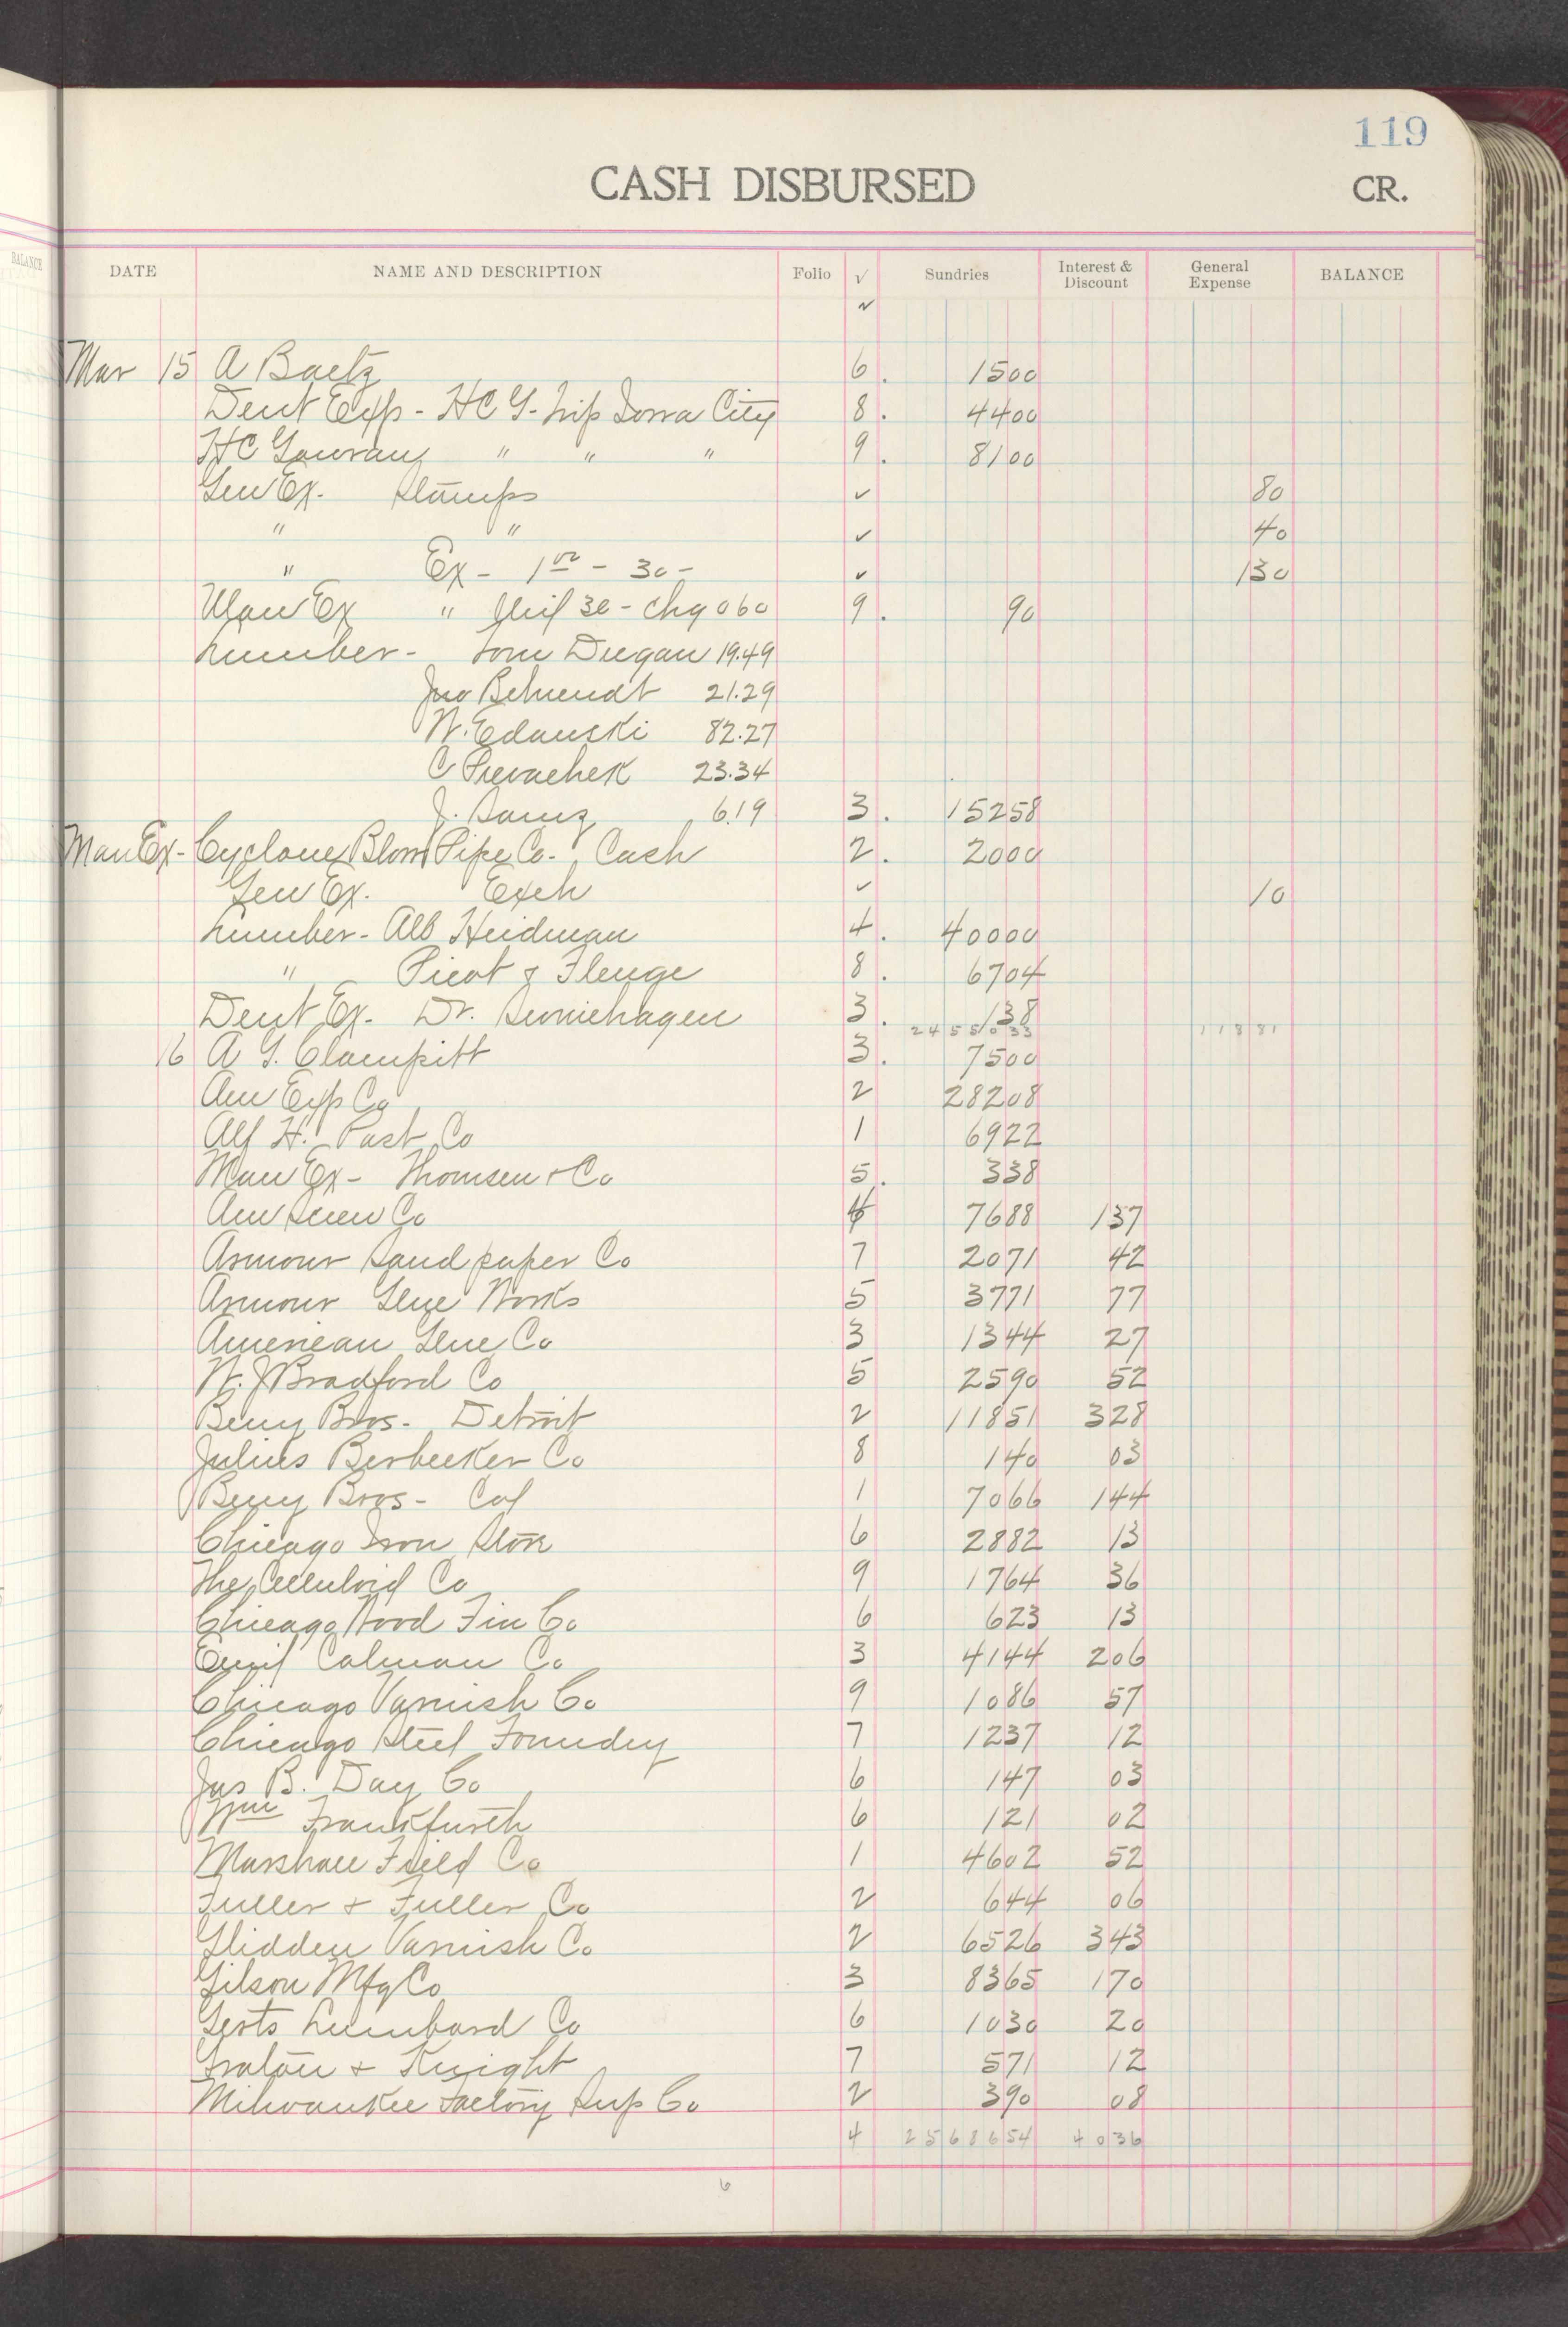 119
CASH DISBURSED CR.
BALANCE
DATE NAME AND DESCRIPTION Folio √ Sundries Interest & Discount General Expense BALANCE
✓
Mar 15 A Baetz 6. 1500
Dent Exp - HCG - trip Iowa City 8. 4400
HC " " " 9. 8100
Gen Ex. Stamps ✓ 80
" " ✓ 40
" Ex - 1 00 - 30 - ✓ 130
Man Ex " 30 - Chgo 60 9. 90
Lumber - Tom Degan 19.49
Jno Behrendt 21.29
W. Edanski 82.27
C 23.34
J. 6.19 3. 15258
Man Ex - Cyclone Blow Pipe Co - Cash 2. 2000
Gen Ex. Exch ✓ 10
Lumber - Alb Heidman 4. 40000
" Picot & Flenge 8. 6704
Dent Ex - Dr. 3. 138
2455033 11881
16 A G. Clampitt 3. 7500
Am Exp Co 2 28208
Alf H. Past Co 1 6922
Man Ex - Thomsen & Co 5. 338
Am Screw Co 4 7688 137
Armour Sand paper Co 7 2071 42
Armour Glue Works 5 3771 77
American Glue Co 3 1344 27
W. J Bradford Co 5 2590 52
Berry Bros - Detroit 2 11851 328
Julius Berbecker Co 8 140 03
Berry Bros - Cal 1 7066 144
Chicago Iron Store 6 2882 13
The Celluloid Co 9 1764 36
Chicago Wood Fin Co 6 623 13
Emil Calman Co 3 4144 206
Chicago Varnish Co 9 1086 57
Chicago Steel Foundry 7 1237 12
Jas B. Day Co 6 147 03
Wm Frankfurth 6 121 02
Marshall Field Co 1 4602 52
Fuller & Fuller Co 2 644 06
Glidden Varnish Co 2 6526 343
Gilson Mfg Co 3 8365 170
Gerts Lumbard Co 6 1030 20
Graton & Knight 7 571 12
Milwaukee Factory Sup Co 2 390 08
4 2568654 4036
6